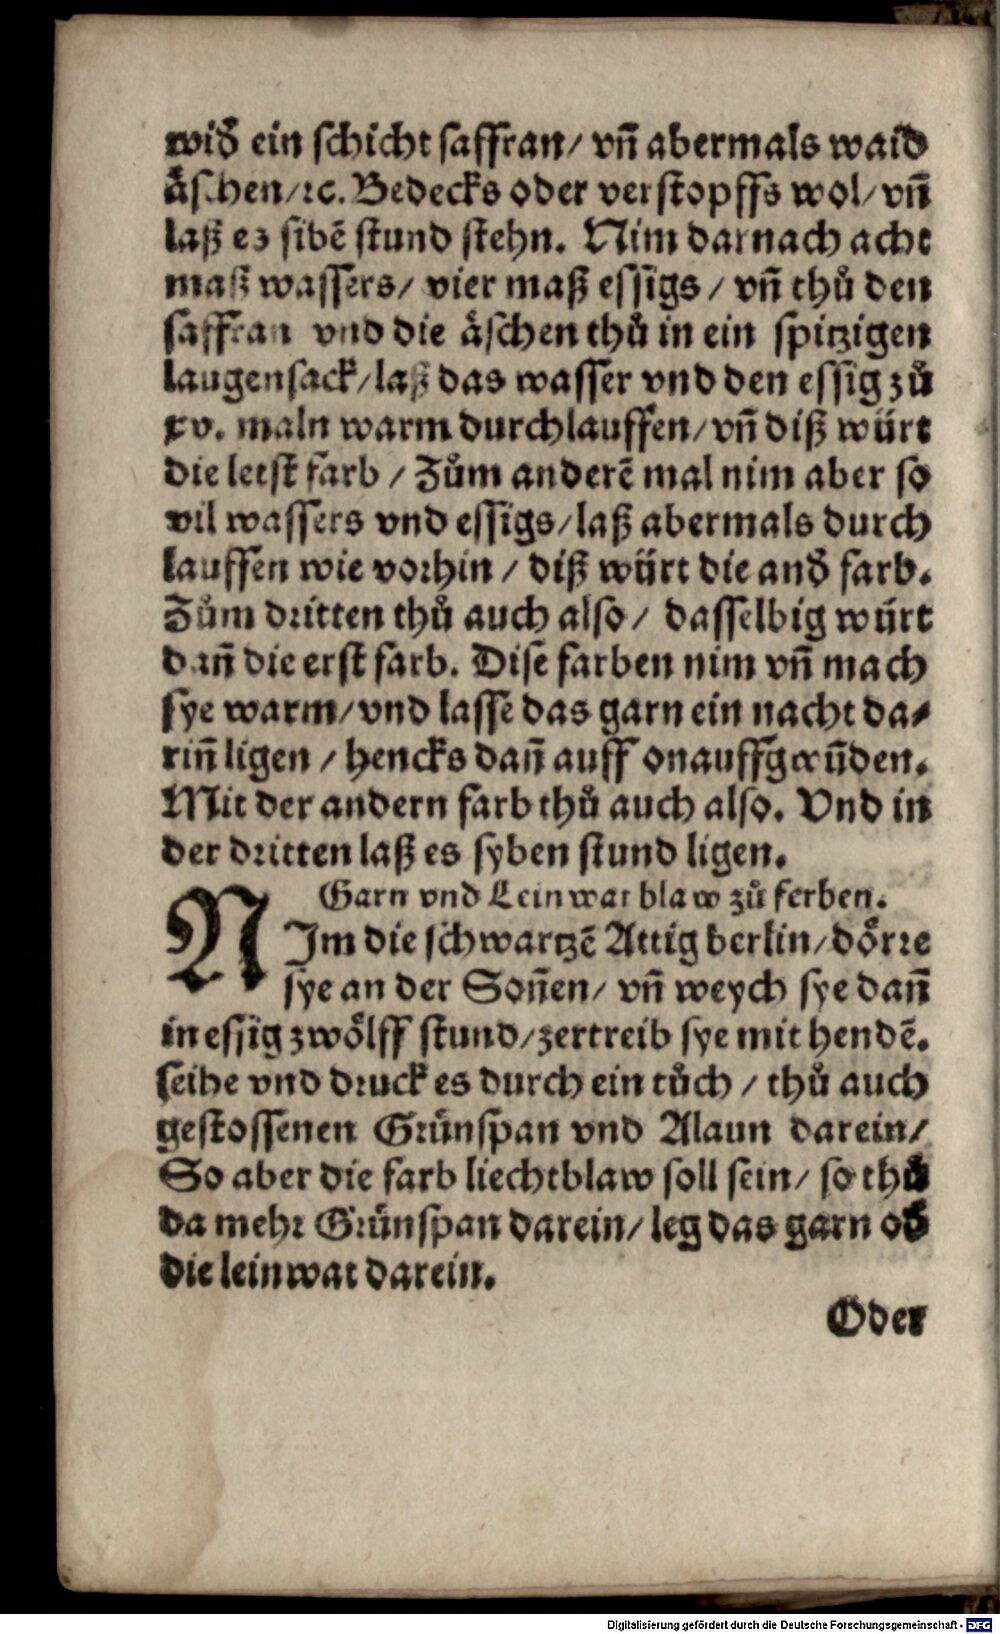 wid̕ ein schicht saffran/ vn̄ abermals waid
aͤschen/ꝛc. Bedecks oder verstopffs wol/ vn̄
laß es sibē stund stehn. Nim darnach acht
maß wassers/ vier maß essigs / vn̄ thuͦ den
saffran vnd die aͤschen thuͦ in ein spitzigen
laugensack/laß das wasser vnd den essig zuͦ
xv. maln warm durchlauffen/vn̄ diß wuͤrt
die letst farb / Zuͦm anderē mal nim aber so
vil wassers vnd essigs/laß abermals durch
lauffen wie vorhin / diß wuͤrt die and̕ farb.
Zuͦm dritten thuͦ auch also / dasselbig wuͤrt
dan̄ die erst farb. Dise farben nim vn̄ mach
sye warm/vnd lasse das garn ein nacht da⸗
rin̄ ligen / hencks dan̄ auff onauffgewūden.
Mit der andern farb thuͦ auch also. Vnd in
der dritten laß es syben stund ligen.
Garn vnd Leinwat blaw zuͦ ferben.
NJm die schwartzē Attig berlin/doͤrre
sye an der Son̄en/ vn̄ weych sye dan̄
in essig zwoͤlff stund/zertreib sye mit hendē.
seihe vnd druck es durch ein tuͦch / thuͦ auch
gestossenen Gruͤnspan vnd Alaun darein/
So aber die farb liechtblaw soll sein/ so thuͦ
da mehr Gruͤnspan darein/ leg das garn od̕
die leinwat darein.
Oder
Digitalisierung gefördert durch die Deutsche Forschungsgemeinschaft - DFG